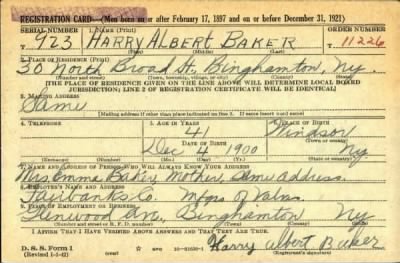 REGISTRATION CARD—(Men born on or after February 17, 1897 and on or before December 31, 1921)
SERIAL NUMBER 1. NAME (Print) ORDER NUMBER
T 723 HARRY ALBERT BAKER 11226
(First) (Middle) (Last)
2. PLACE OF RESIDENCE (Print)
30 North Broad St. Binghamton, Ny.
(Number and street) (Town, township, village, or city) (County) (State)
[THE PLACE OF RESIDENCE GIVEN ON THE LINE ABOVE WILL DETERMINE LOCAL BOARD
JURISDICTION; LINE 2 OF REGISTRATION CERTIFICATE WILL BE IDENTICAL]
3. MAILING ADDRESS
Same
[Mailing address if other than place indicated on line 2. If same insert word same]
4. TELEPHONE 5. AGE IN YEARS 6. PLACE OF BIRTH
41 Windsor
DATE OF BIRTH (Town or county)
Dec 4 1900 Ny
(Exchange) (Number) (Mo.) (Day) (Yr.) (State or country)
7. NAME AND ADDRESS OF PERSON WHO WILL ALWAYS KNOW YOUR ADDRESS
Mrs Emma Baker, Mother, Same address.
8. EMPLOYER'S NAME AND ADDRESS
Fairbanks Co. Mfgrs of Valves
9. PLACE OF EMPLOYMENT OR BUSINESS
Glenwood Ave, Binghamton Ny
(Number and street or R. F. D. number) (Town) (County) (State)
I AFFIRM THAT I HAVE VERIFIED ABOVE ANSWERS AND THAT THEY ARE TRUE.
D. S. S. Form 1 Harry Albert Baker
(Revised 1-1-42) (over) (Registrant's signature)